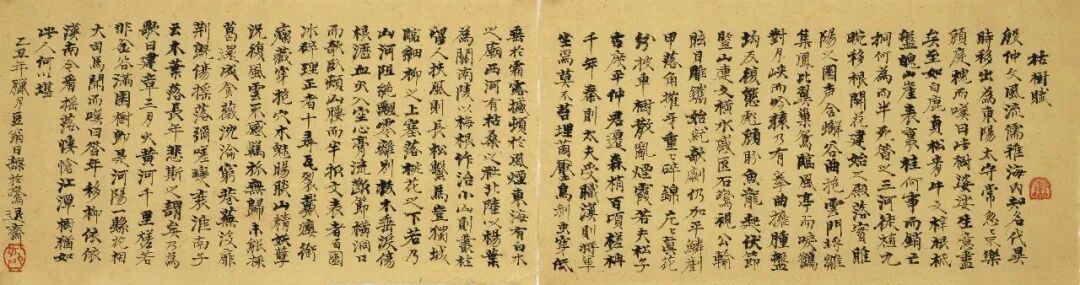 枯樹賦
殷仲文風流儒雅海內知名代異
時移出為東陽太守常忽忽不樂
顧庭槐而嘆曰此樹婆娑生意盡
矣至如白鹿貞松青牛文梓根柢
盤魄山崖表裏桂何事而銷亡
桐何為而半死昔之三河徙殖九
畹移根開花建始之殿落實睢
陽之園聲含嶰谷曲抱雲門將雛
集鳳比翼巢鴛臨風亭而唳鶴
對月峽而吟猿乃有拳曲擁腫盤
坳反覆熊彪顧盼魚龍起伏節
豎山連文橫水蹙匠石驚視公輸
眩目雕鐫始就剞劂仍加平鱗剷
甲落角摧牙重重碎錦片片真花
紛披草樹散亂煙霞若夫松子
古度平仲君遷森梢百頃槎枿
千年秦則大夫受職漢則將軍
坐焉莫不苔埋菌壓鳥剝蟲穿低
垂於霜露撼頓於風煙東海有白木
之廟西河有枯桑之社北陸以楊葉
為關南陵以梅根作冶小山則叢桂
留人扶風則長松繫馬豈獨城
臨細柳之上塞落桃花之下若乃
山河阻絕飄零離別拔本垂淚傷
根瀝血火入空心膏流斷節橫洞口
而欹臥頓山腰而半折文表者百圍
冰碎理正者千尋瓦裂戴癭銜
瘤藏穿抱穴木魅睗睒山精妖孽
況復風雲不感羈旅無歸未能採
葛還成食薇沈淪窮巷蕪沒扉
荊既傷搖落彌嗟變衰淮南子
云木葉落長年悲斯之謂矣乃為
歌曰建章三月火黃河千里槎若
非金谷滿園樹即是河陽一縣花桓
大司馬聞而嘆曰昔年移柳依依
漢南今看搖落悽愴江潭樹猶如
此人何以堪
乙丑年臘月翁日課於鷺島